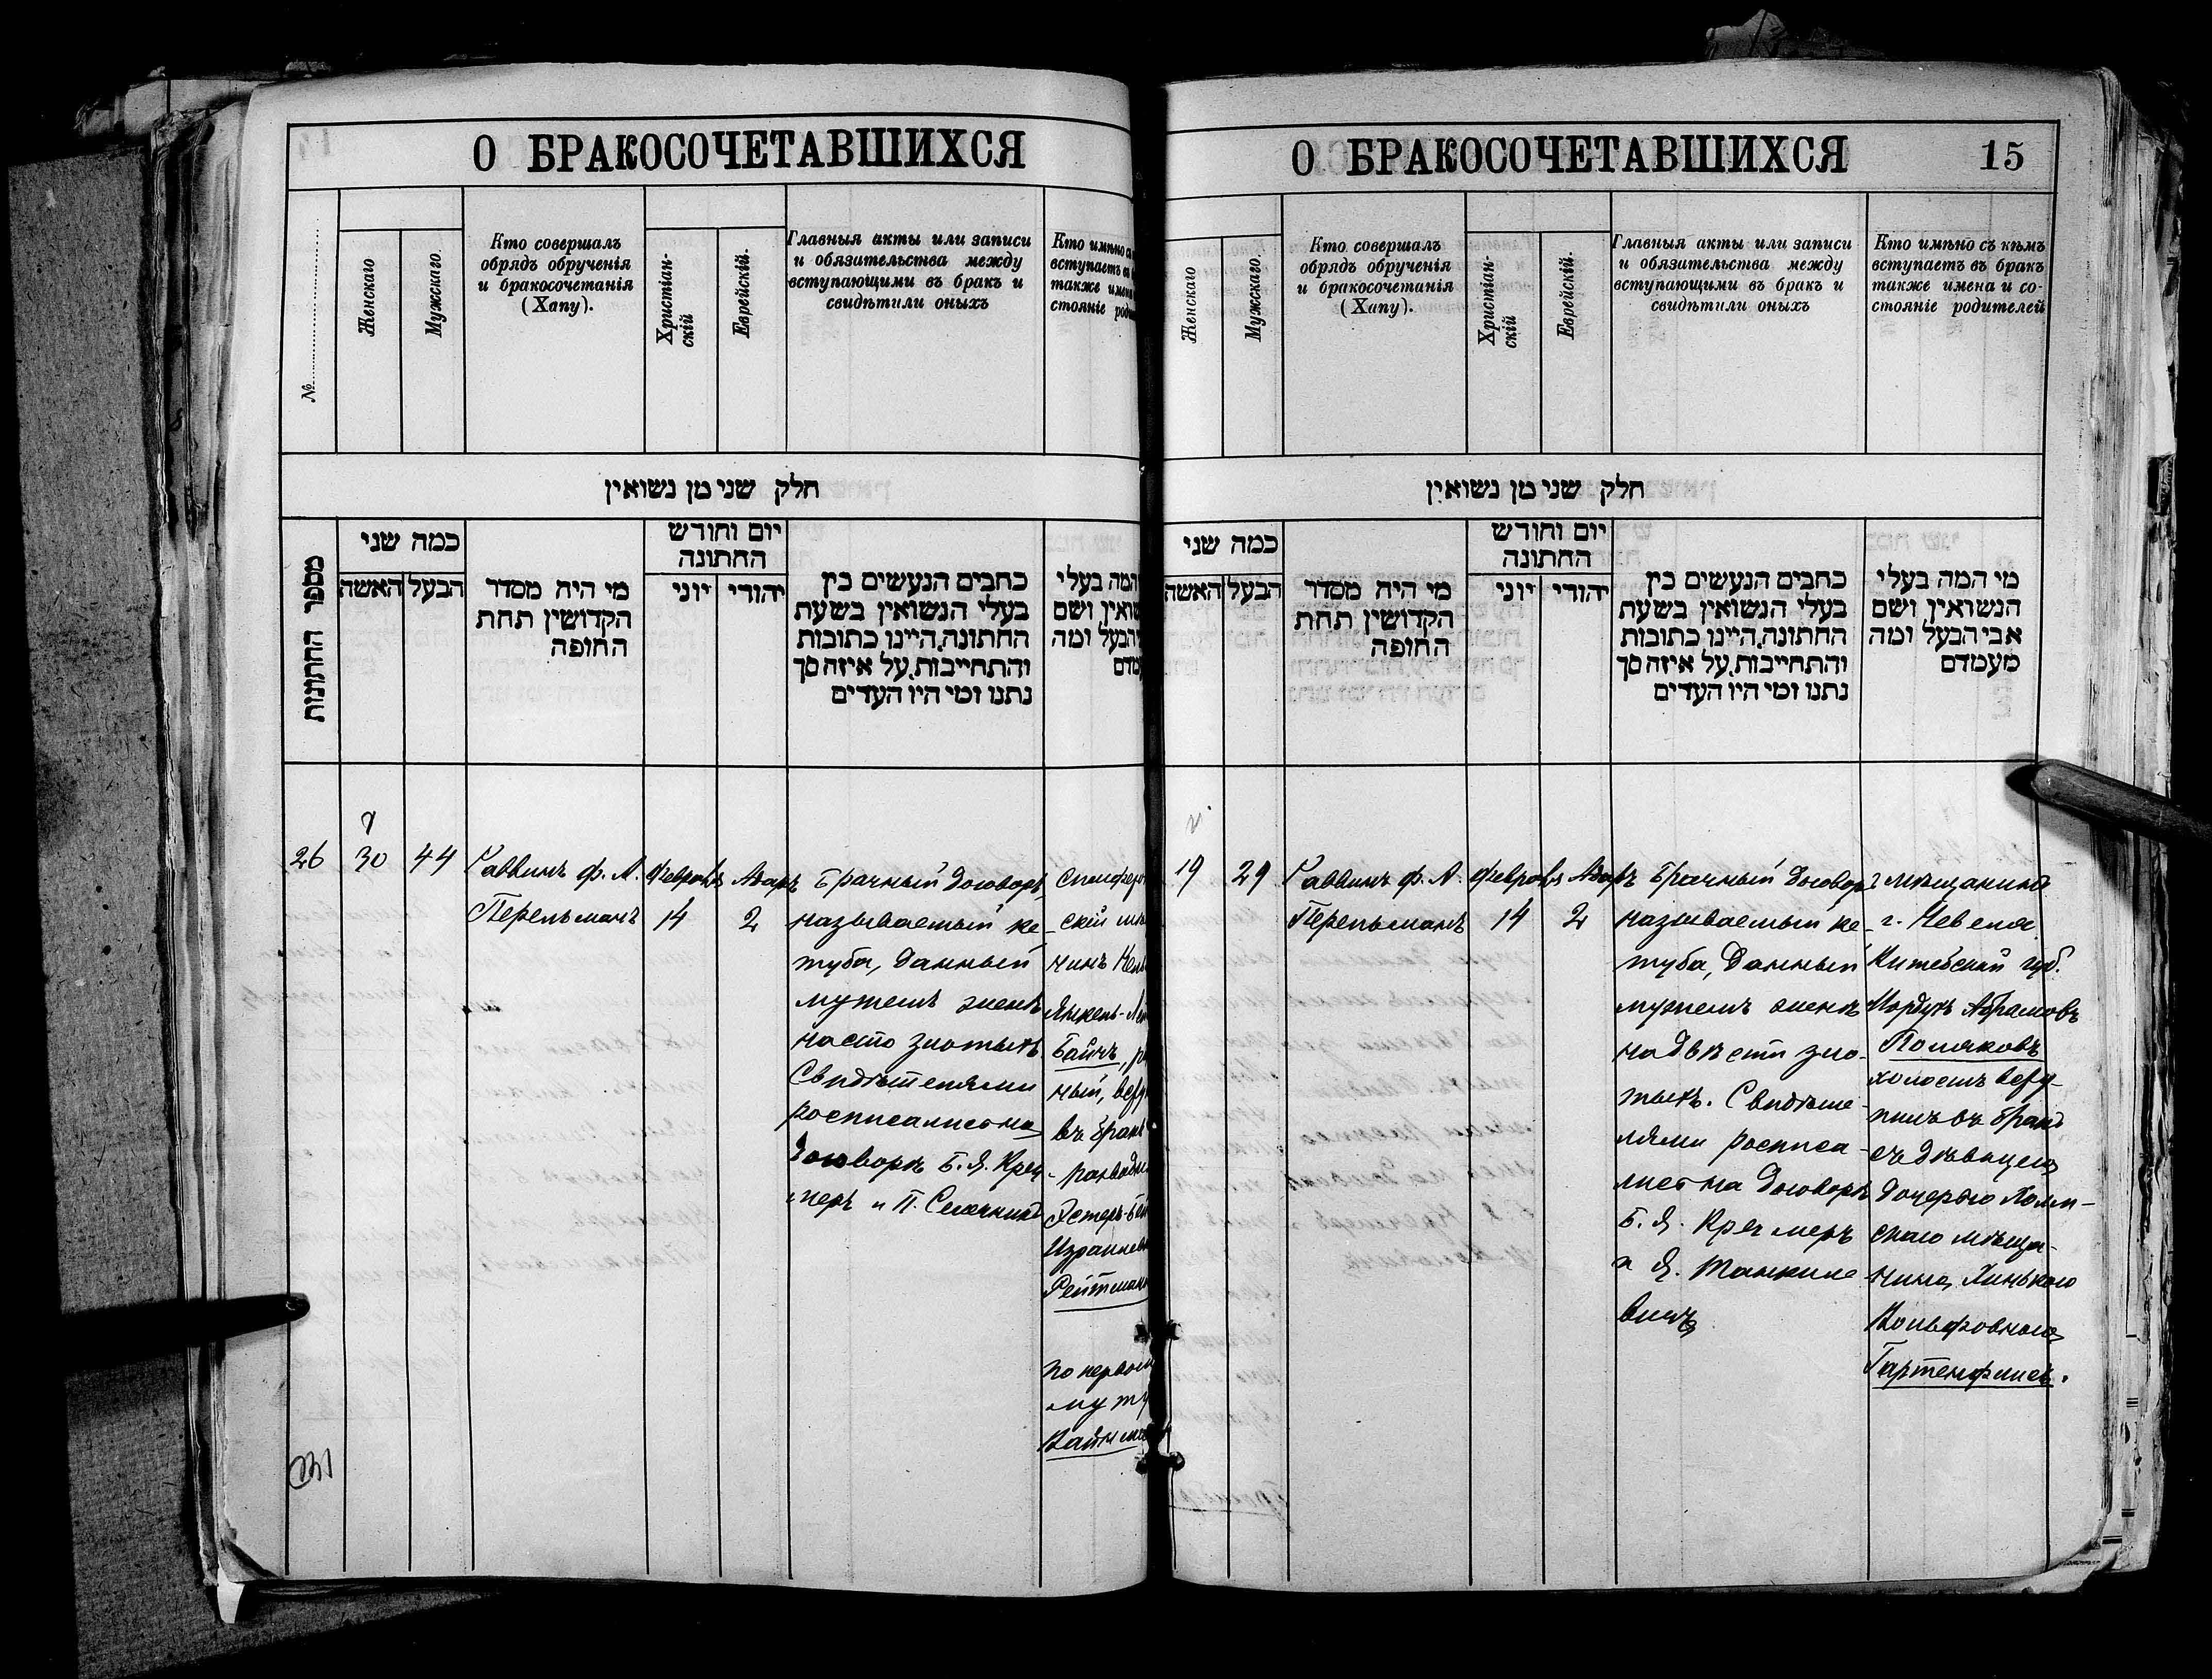 О БРАКОСОЧЕТАВШИХСЯ
№
Женскаго
Мужскаго.
Кто совершалъ
обрядъ обрученія
и бракосочетанія
(Хапу).
Христіан-
скій
Еврейскій.
Главныя акты или записи
и обязательства между
вступающими въ бракъ и
свидѣтили оныхъ
Кто имѣно
вступаетъ
также
стояніе
חלק שני מן נשואין
מספר החתונות
כמה שני
האשה
הבעל
מי היה מסדר
הקדושין תחת
החופה
יום וחודש
החתונה
יוני
יהודי
כתבים הנעשים בין
בעלי הנשואין בשעת
החתונה,היינו כתובות
והתחייבות,על איזה סך
נתנו ומי היו העדים
המה בעלי
ושם
הבעל ומה
26
30
44
Раввинъ Ф. А.
Перельманъ
Февраля
14
Адаръ
2
Брачный договоръ,
называемый ке-
туба, данный
мужемъ женѣ
на сто злотыхъ
Свидѣтелями
росписались на
договорѣ Б. Я. Креч-
меръ и П.
скій
чинъ
Янкель-
Баичъ,
ный,
въ бракъ
Эстеръ-
Рейтманъ
по первому
мужу
О БРАКОСОЧЕТАВШИХСЯ
15
Женскаго
Мужскаго.
Кто совершалъ
обрядъ обрученія
и бракосочетанія
(Хапу).
Христіан-
скій
Еврейскій.
Главныя акты или записи
и обязательства между
вступающими въ бракъ и
свидѣтили оныхъ
Кто имѣно съ кѣмъ
вступаетъ въ бракъ
также имена и со-
стояніе родителей
חלק שני מן נשואין
כמה שני
האשה
הבעל
מי היה מסדר
הקדושין תחת
החופה
יום וחודש
החתונה
יוני
יהודי
כתבים הנעשים בין
בעלי הנשואין בשעת
החתונה,היינו כתובות
והתחייבות,על איזה סך
נתנו ומי היו העדים
מי המה בעלי
הנשואין ושם
אבי הבעל ומה
מעמדם
19
29
Раввинъ Ф. А.
Перельманъ
Февраля
14
Адаръ
2
Брачный договоръ
называемый ке-
туба, данный
мужемъ женѣ
на двѣсти зло-
тыхъ. Свидѣте-
лями росписа-
лись на договорѣ
Б. Я. Кречмеръ
и Я. Манкиле-
вичъ
мѣщанинъ
г. Невеля
Витебской губ.
Мордухъ Абрамовъ
Поляковъ
холостъ всту-
пилъ въ бракъ
съ дѣвицею
дочерью Холм-
скаго мѣща-
нина,
Вольфовною
Гартенфлисъ.